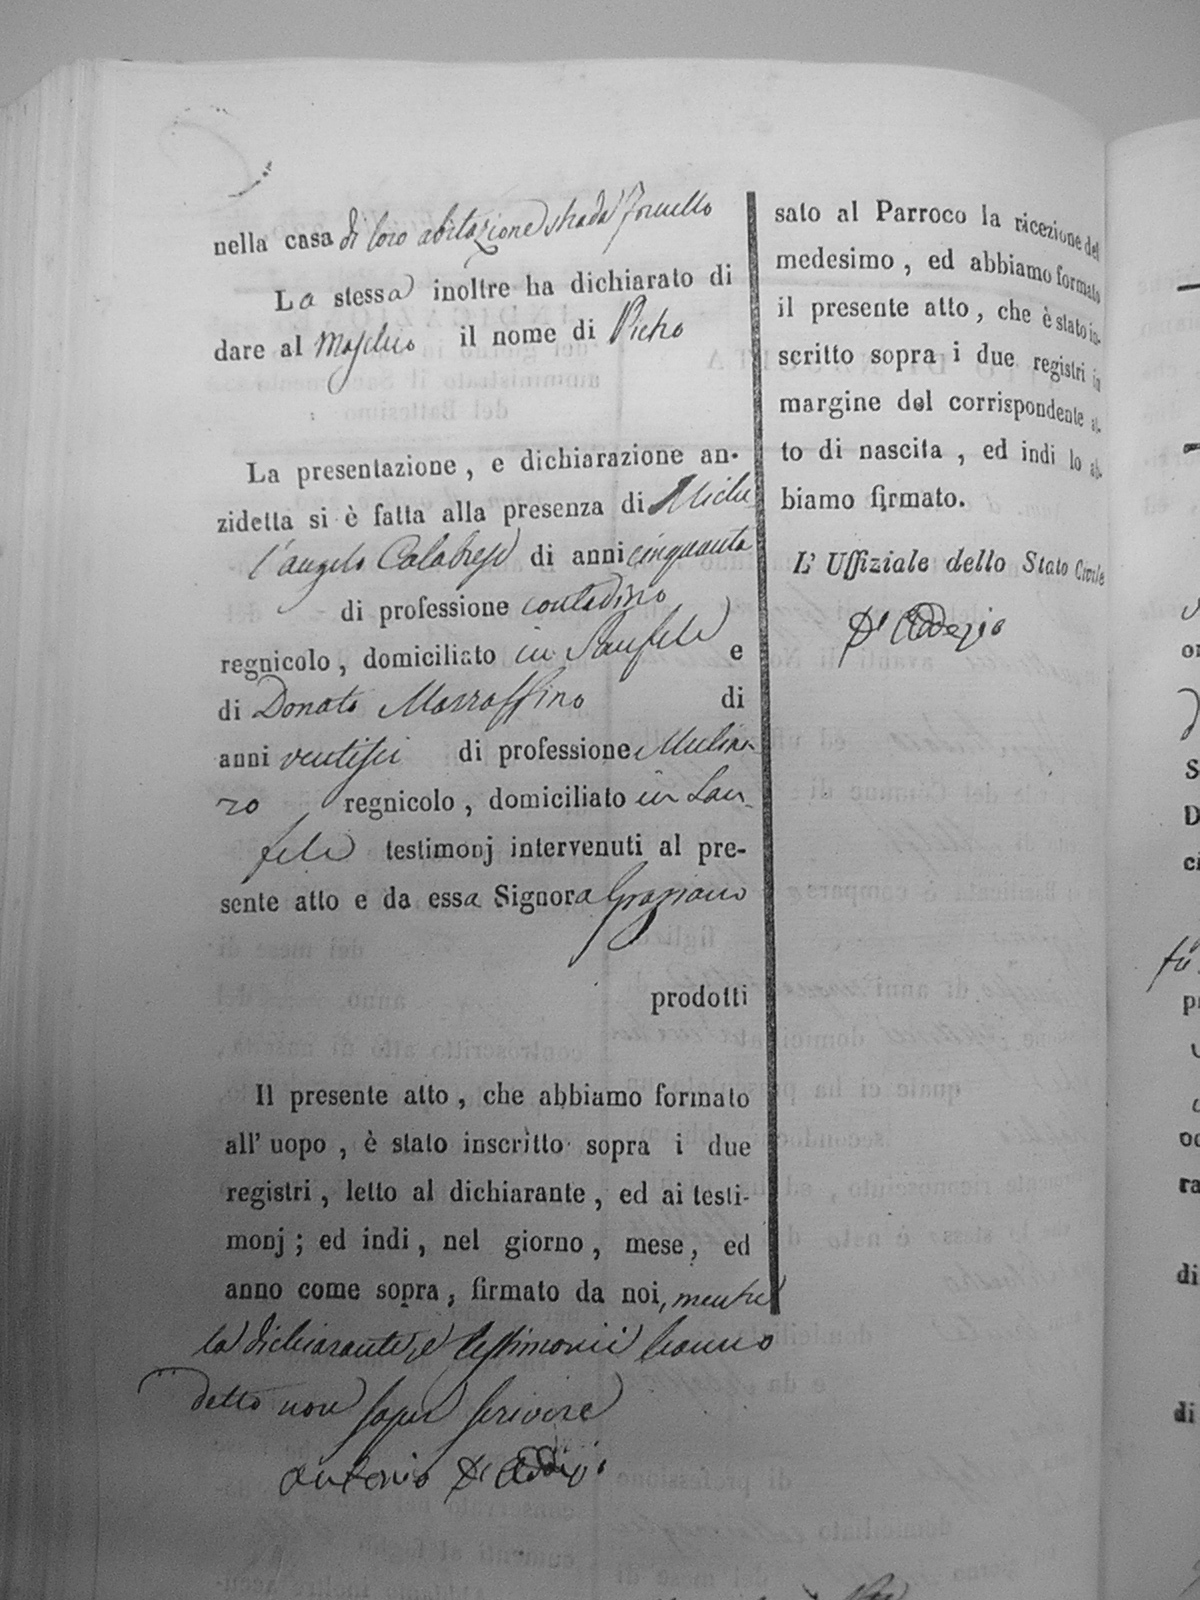 nella casa di loro abitazione strada Fornello
La stessa inoltre ha dichiarato di
dare al Maschio il nome di Pietro
La presentazione, e dichiarazione an-
zidetta si è fatta alla presenza di Miche
l'angelo Calabrese di anni cinquanta
di professione contadino
regnicolo, domiciliato in Sanfele e
di Donato Marraffino di
anni ventisei di professione Mulina-
ro regnicolo, domiciliato in San
fele testimonj intervenuti al pre-
sente atto e da essa Signora Graziano
prodotti
Il presente atto, che abbiamo formato
all' uopo, è stato inscritto sopra i due
registri, letto al dichiarante, ed ai testi-
monj; ed indi, nel giorno, mese, ed
anno come sopra, firmato da noi, mentre
la dichiarante, e testimonii hanno
detto non saper scrivere
Antonio D'Addezio
sato al Parroco la ricezione del
medesimo, ed abbiamo formato
il presente atto, che è stato in-
scritto sopra i due registri in
margine del corrispondente at-
to di nascita, ed indi lo ab-
biamo firmato.
L' Uffiziale dello Stato Civile
D'Addezio